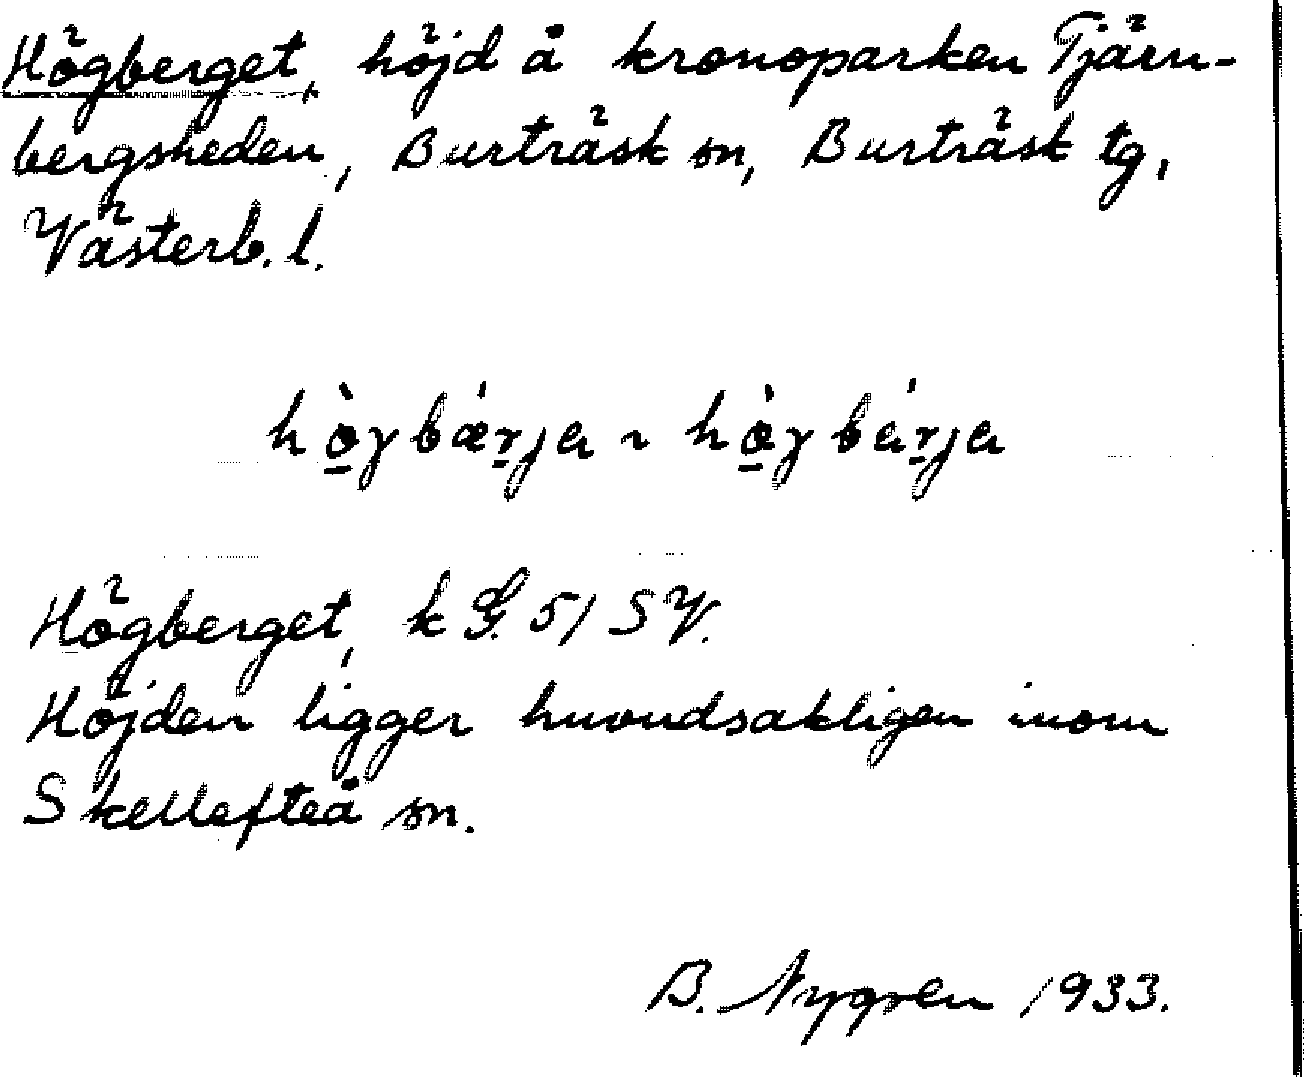 Högberget, höjd å kronoparken Tjärn-
bergsheden, Burträsk sn, Burträsk tg,
Västerb. l.
Högberget, k G. 51 SV.
Höjden ligger huvudsakligen inom
Skellefteå sn.
B. Nygren 1933.